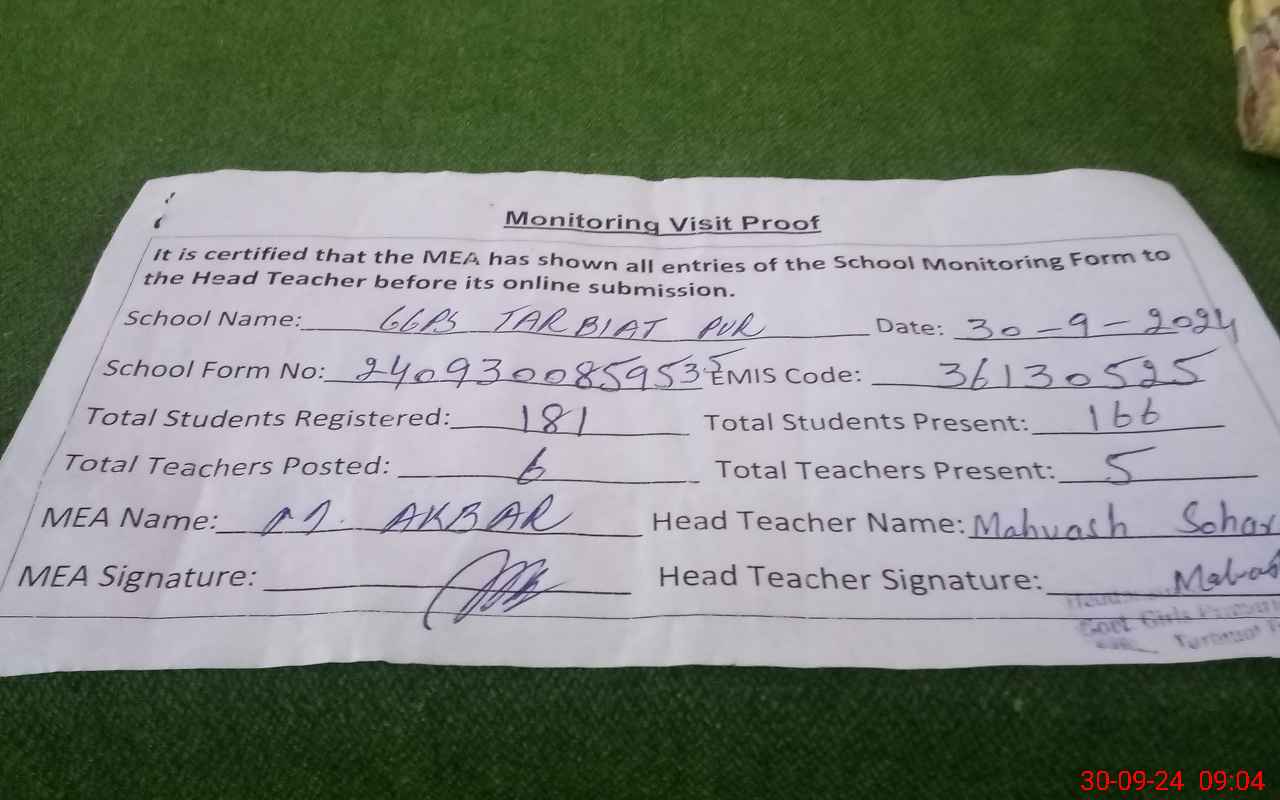 Monitoring Visit Proof
It is certified that the MEA has shown all entries of the School Monitoring Form to
the Head Teacher before its online submission.
School Name: GGPS TARBIAT PUR Date: 30-9-2024
School Form No: 2409300859535 EMIS Code: 36130525
Total Students Registered: 181 Total Students Present: 166
Total Teachers Posted: 6 Total Teachers Present: 5
MEA Name: M. AKBAR Head Teacher Name: Mahvash Sohar
MEA Signature: Head Teacher Signature:
Govt Girls Primary
30-09-24 09:04